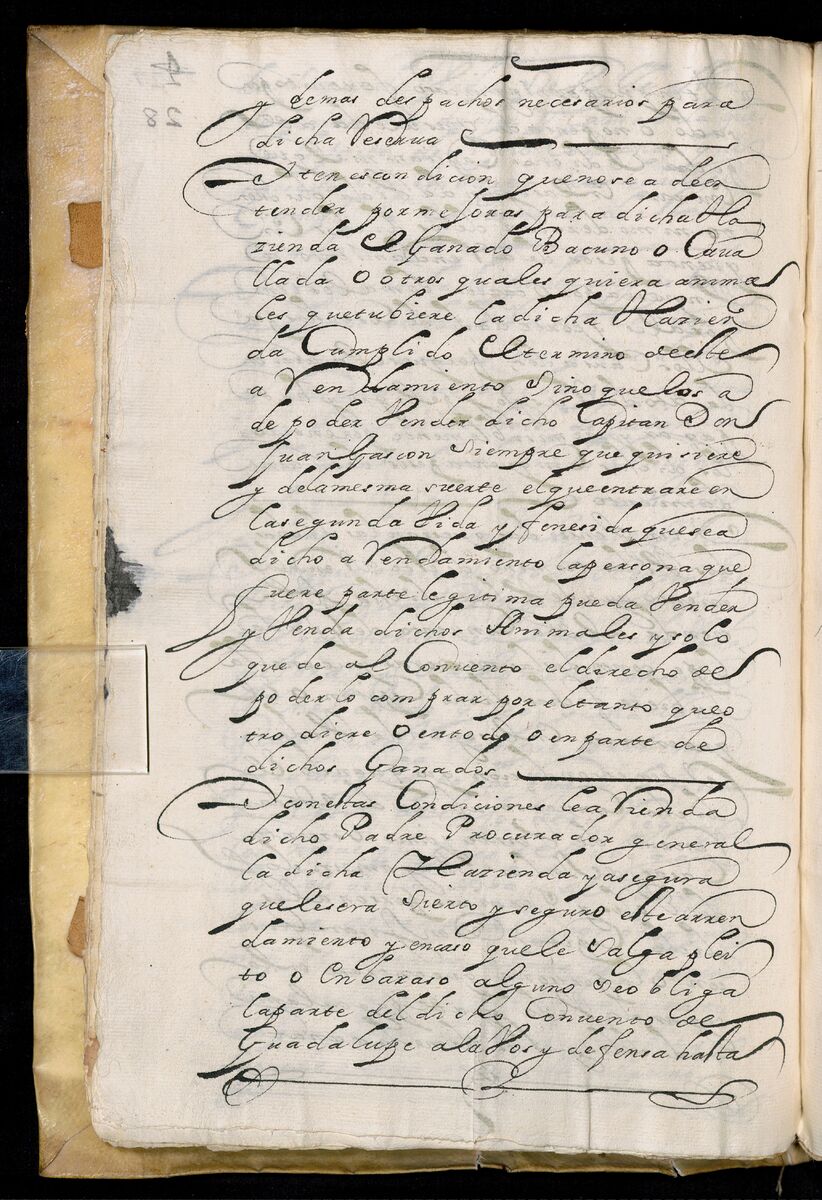 y demas despachos necesarios para
dicha Reserua
Iten es condicion que no se a de en
tender por mejoras para dicha Ha
zienda El Ganado Bacuno o Caua
llada o otros quales quiera anima
les que tubiere la dicha Hazien
da Cumplido El termino de este
a Rendamiento Sino que los a
de poder Vender dicho Capitan Don
Juan Gascon Siempre que quisiere
y de la mesma suerte el que entrare en
la segunda Vida y fenesida que sea
dicho a Rendamiento la persona que
fuere parte legitima pueda Vender
y Venda dichos Animales y solo
quede al Convento el direcho de
poderlo comprar por el tanto que o
tro diere o en todo o en parte de
dichos Ganados
I con estas Condiciones le a Rienda
dicho Padre Procurador general
la dicha Hazienda y asegura
que le sera Sierto y seguro este arren
damiento y en caso que le Salga plei
to o Enbaraso alguno Se obliga
la parte del dicho Convento de
Guadalupe a la Vos y defensa hasta